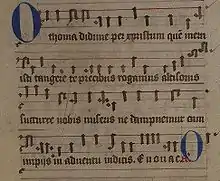 O thoma didime per xpistum quem meru
isti tangere te precibus rogamus altisonis
succurre nobis miseris ne dampnemur cum
impijs in aduentu iudicis. E u o u a e. O